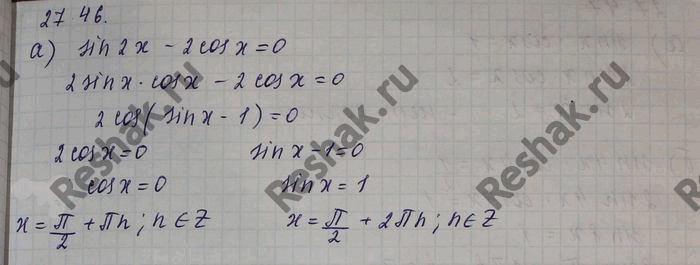 27.46.
а) sin2x - 2cosx = 0
2sinx·cosx - 2cosx = 0
2cos(sinx - 1) = 0
2cosx = 0 sinx - 1 = 0
cosx = 0 sinx = 1
x = π/2 + πn; n ∈ Z x = π/2 + 2πn; n ∈ Z
Reshak.ru
Reshak.ru
Reshak.ru